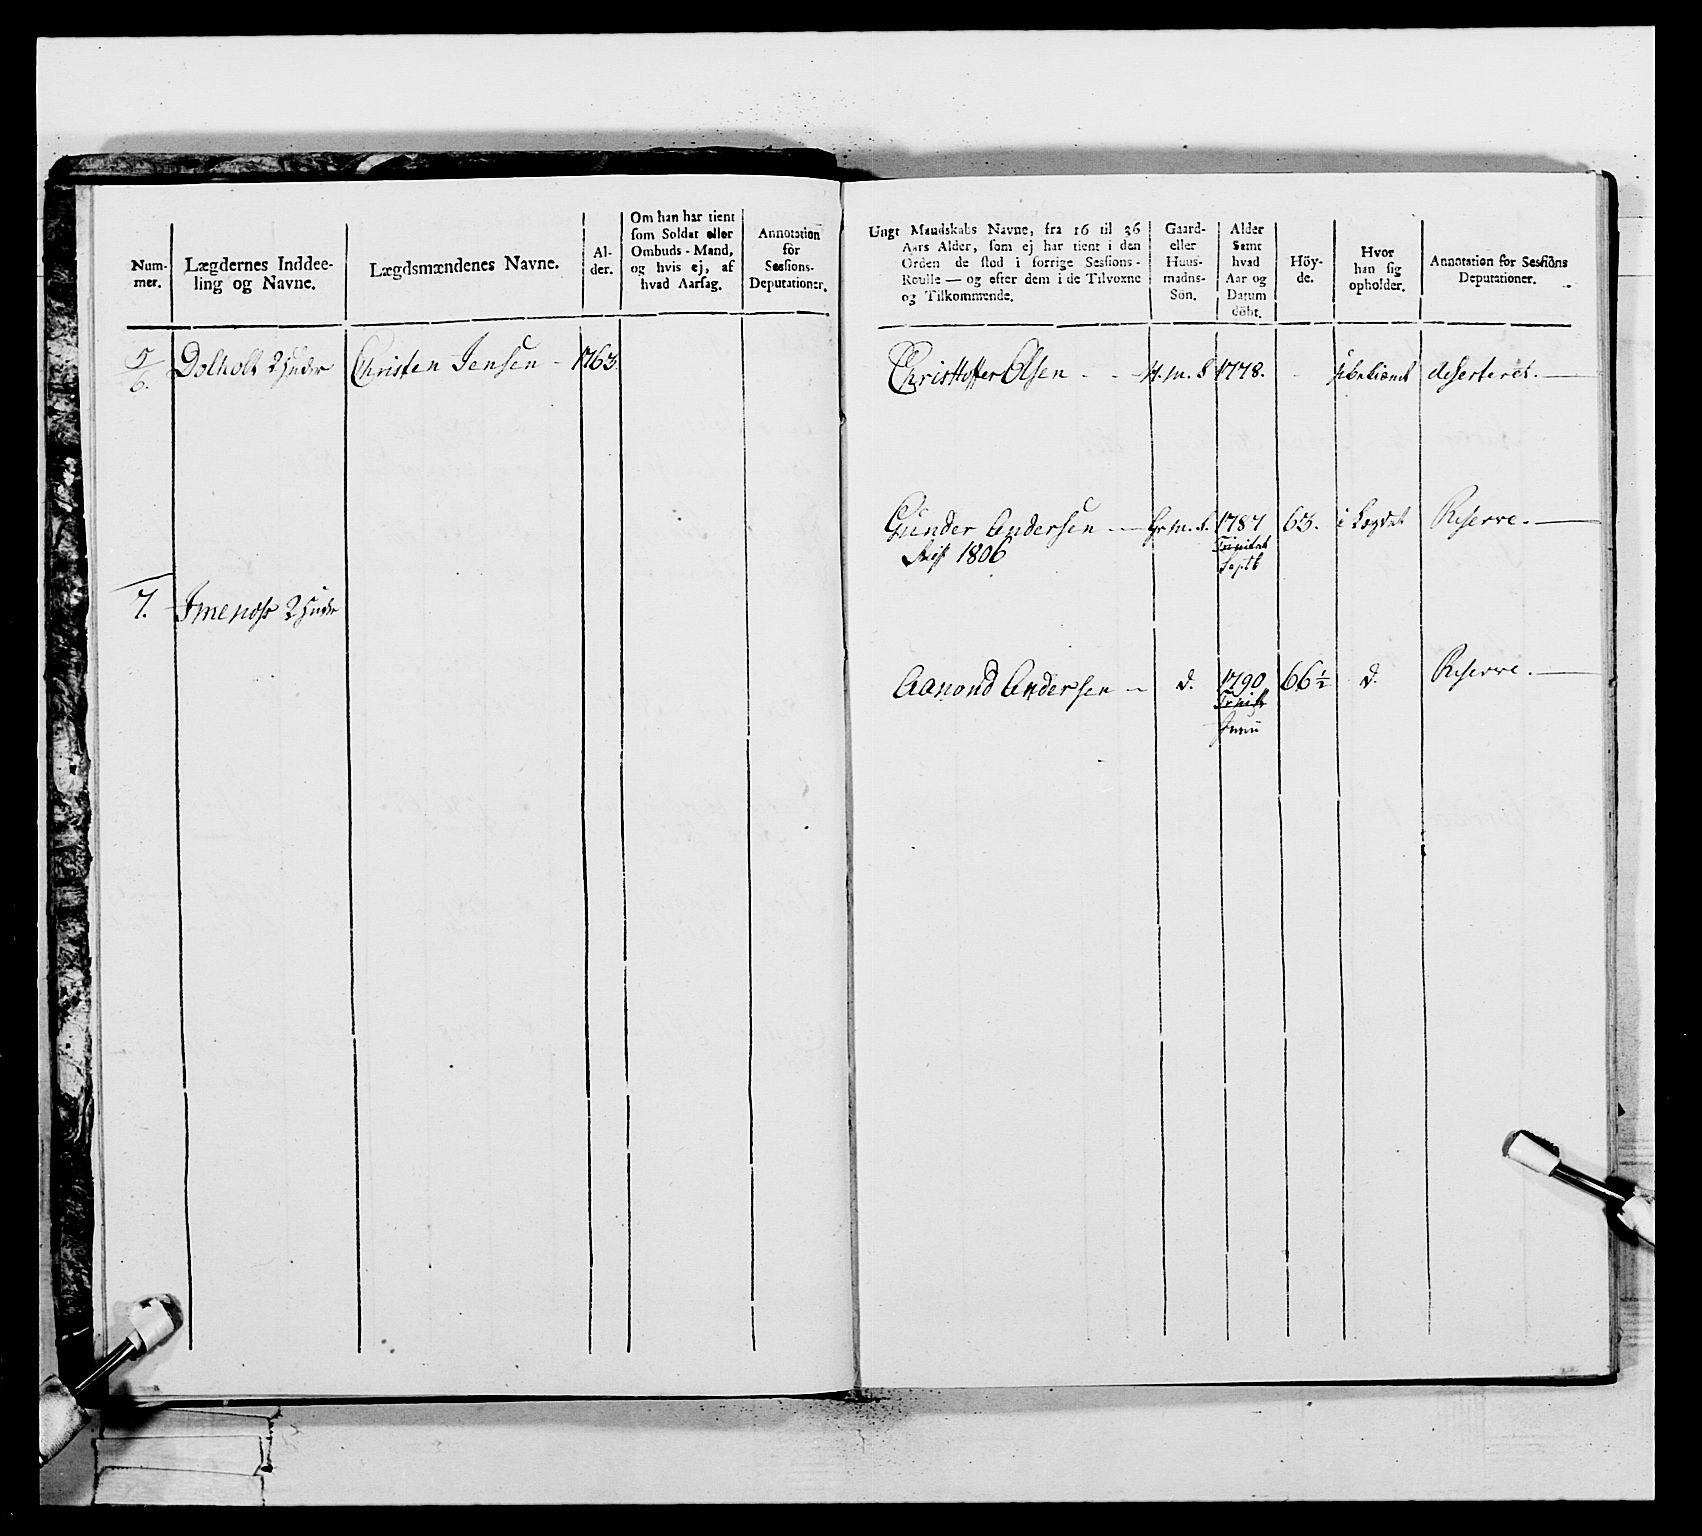 Num-
mer.
Lægdernes Inddee-
ling og Navne.
Lægdsmændenes Navne.
Al-
der.
Om han har tient
som Soldat eller
Ombuds-Mand,
og hvis ej, af
hvad Aarsag.
Annotation
for
Sessions-
Deputationer.
5/6. Dolholt 2 Huder Christen Jensen - 1763.
7. Imenæss 2 Huder
Ungt Mandskabs Navne, fra 16 til 36
Aars Alder, som ej har tient i den
Orden de stod i forrige Sessions-
Roulle — og efter dem i de Tilvoxne
og Tilkommende.
Gaard-
eller
Huus-
madns-
Sön.
Alder
Samt
hvad
Aar og
Datum
döbt.
Höy-
de.
Hvor
han sig
opholder.
Annotation for Sessions
Deputationer.
Christoffer Olsen - - H. m. S 1778. - deserteret.
Gunder Andersen - Gr. m. S. 1787 63. i Lægdet Reserve.
1806 Trinitat
Septb
Aanond Andersen - d. 1790 66 1/2 d. Reserve.
Trinit
Junii